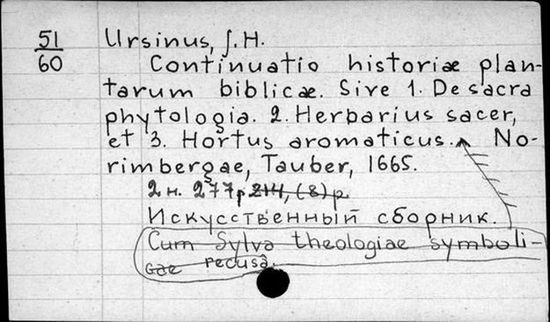 51
60
Ursinus, J. H.
Continuatio historiæ plan-
tarum biblicæ. Sive 1. De sacra
phytologia. 2. Herbarius sacer,
et 3. Hortus aromaticus. No-
rimbergae, Tauber, 1665.
2 н. 277 p 214, (8) p
Искусственный сборник.
Cum Sylva theologiae symboli-
cae recusâ.